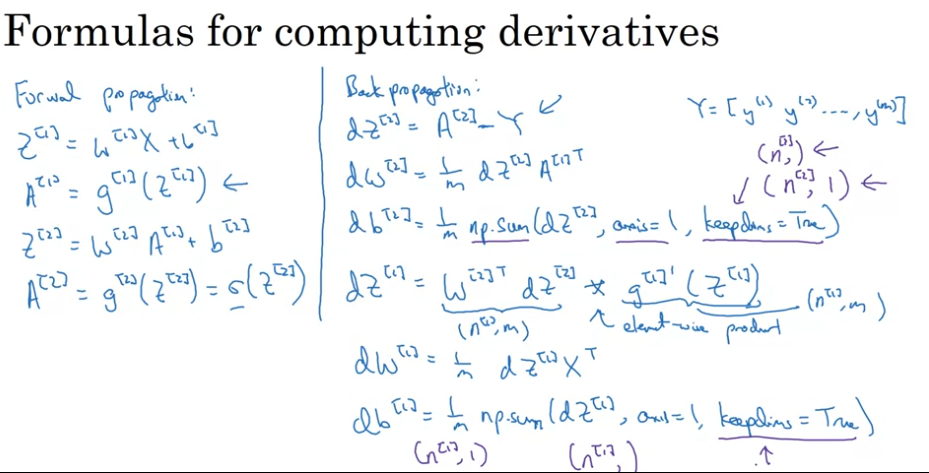 Formulas for computing derivatives
Forwal propagation:
Z^[1] = W^[1]X + b^[1]
A^[1] = g^[1](Z^[1]) ←
Z^[2] = W^[2] A^[1] + b^[2]
A^[2] = g^[2](Z^[2]) = σ(Z^[2])
Back propagation:
dZ^[2] = A^[2] - Y ↙
dW^[2] = 1/m dZ^[2] A^[1]T
db^[2] = 1/m np.sum(dZ^[2], axis = 1, keepdims = True)
dZ^[1] = W^[2]T dZ^[2] * g^[1]' (Z^[1])
(n^[1], m) ↑ element-wise product (n^[1], m)
dW^[1] = 1/m dZ^[1] X^T
db^[1] = 1/m np.sum(dZ^[1], axis = 1, keepdims = True)
(n^[1], 1) (n^[1],) ↑
Y = [y^(1) y^(2) ..., y^(m)]
(n^[2],) ←
↙ (n^[2], 1) ←